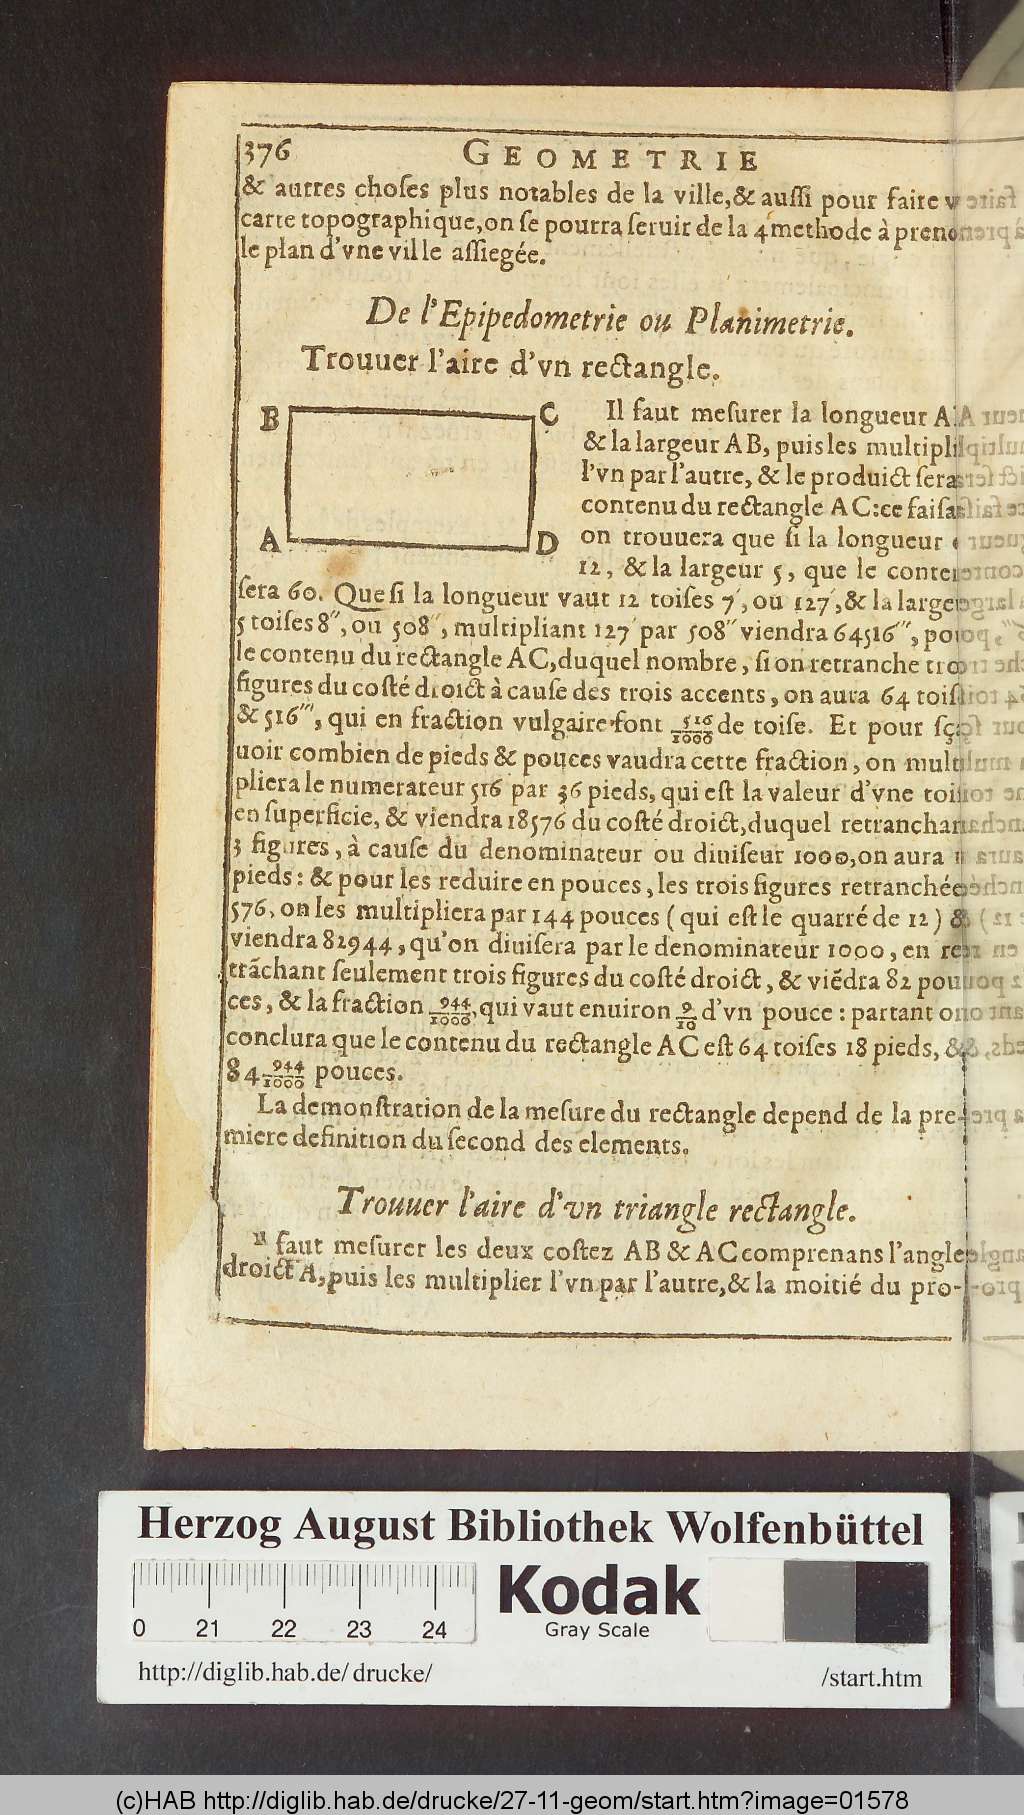 376 GEOMETRIE
& autres choſes plus notables de la ville,& auſſi pour faire
carte topographique,on ſe pourra ſeruir de la 4 methode à
le plan d'vne ville aſſiegée.
De l'Epipedometrie ou Planimetrie.
Trouuer l'aire d'vn rectangle.
B C
A D
Il faut meſurer la longueur
& la largeur AB, puis les
l'vn par l'autre, & le produict ſera
contenu du rectangle AC:ce
on trouuera que ſi la longueur
12, & la largeur 5, que le
ſera 60. Que ſi la longueur vaut 12 toiſes 7′, ou 127′,& la
5 toiſes 8″, ou 508″, multipliant 127′ par 508″ viendra 64516‴,
le contenu du rectangle AC,duquel nombre, ſi on retranche
figures du coſté droict à cauſe des trois accents, on aura 64
& 516‴, qui en fraction vulgaire font 516/1000 de toiſe. Et pour
uoir combien de pieds & pouces vaudra cette fraction, on
pliera le numerateur 516 par 36 pieds, qui eſt la valeur d'vne
en ſuperficie, & viendra 18576 du coſté droict,duquel
3 figures, à cauſe du denominateur ou diuiſeur 1000,on aura
pieds: & pour les reduire en pouces, les trois figures
576, on les multipliera par 144 pouces (qui eſt le quarré de 12) &
viendra 82944, qu'on diuiſera par le denominateur 1000, en
trãchant ſeulement trois figures du coſté droict, & viẽdra 82
ces, & la fraction 944/1000, qui vaut enuiron 9/10 d'vn pouce: partant
conclura que le contenu du rectangle AC eſt 64 toiſes 18 pieds, &
84 944/1000 pouces.
La demonſtration de la meſure du rectangle depend de la pre-
miere definition du ſecond des elements.
Trouuer l'aire d'vn triangle rectangle.
Il faut meſurer les deux coſtez AB & AC comprenans l'angle
droict A, puis les multiplier l'vn par l'autre,& la moitié du pro-
Herzog August Bibliothek Wolfenbüttel
0 21 22 23 24
Kodak
Gray Scale
http://diglib.hab.de/drucke/ /start.htm
(c)HAB http://diglib.hab.de/drucke/27-11-geom/start.htm?image=01578